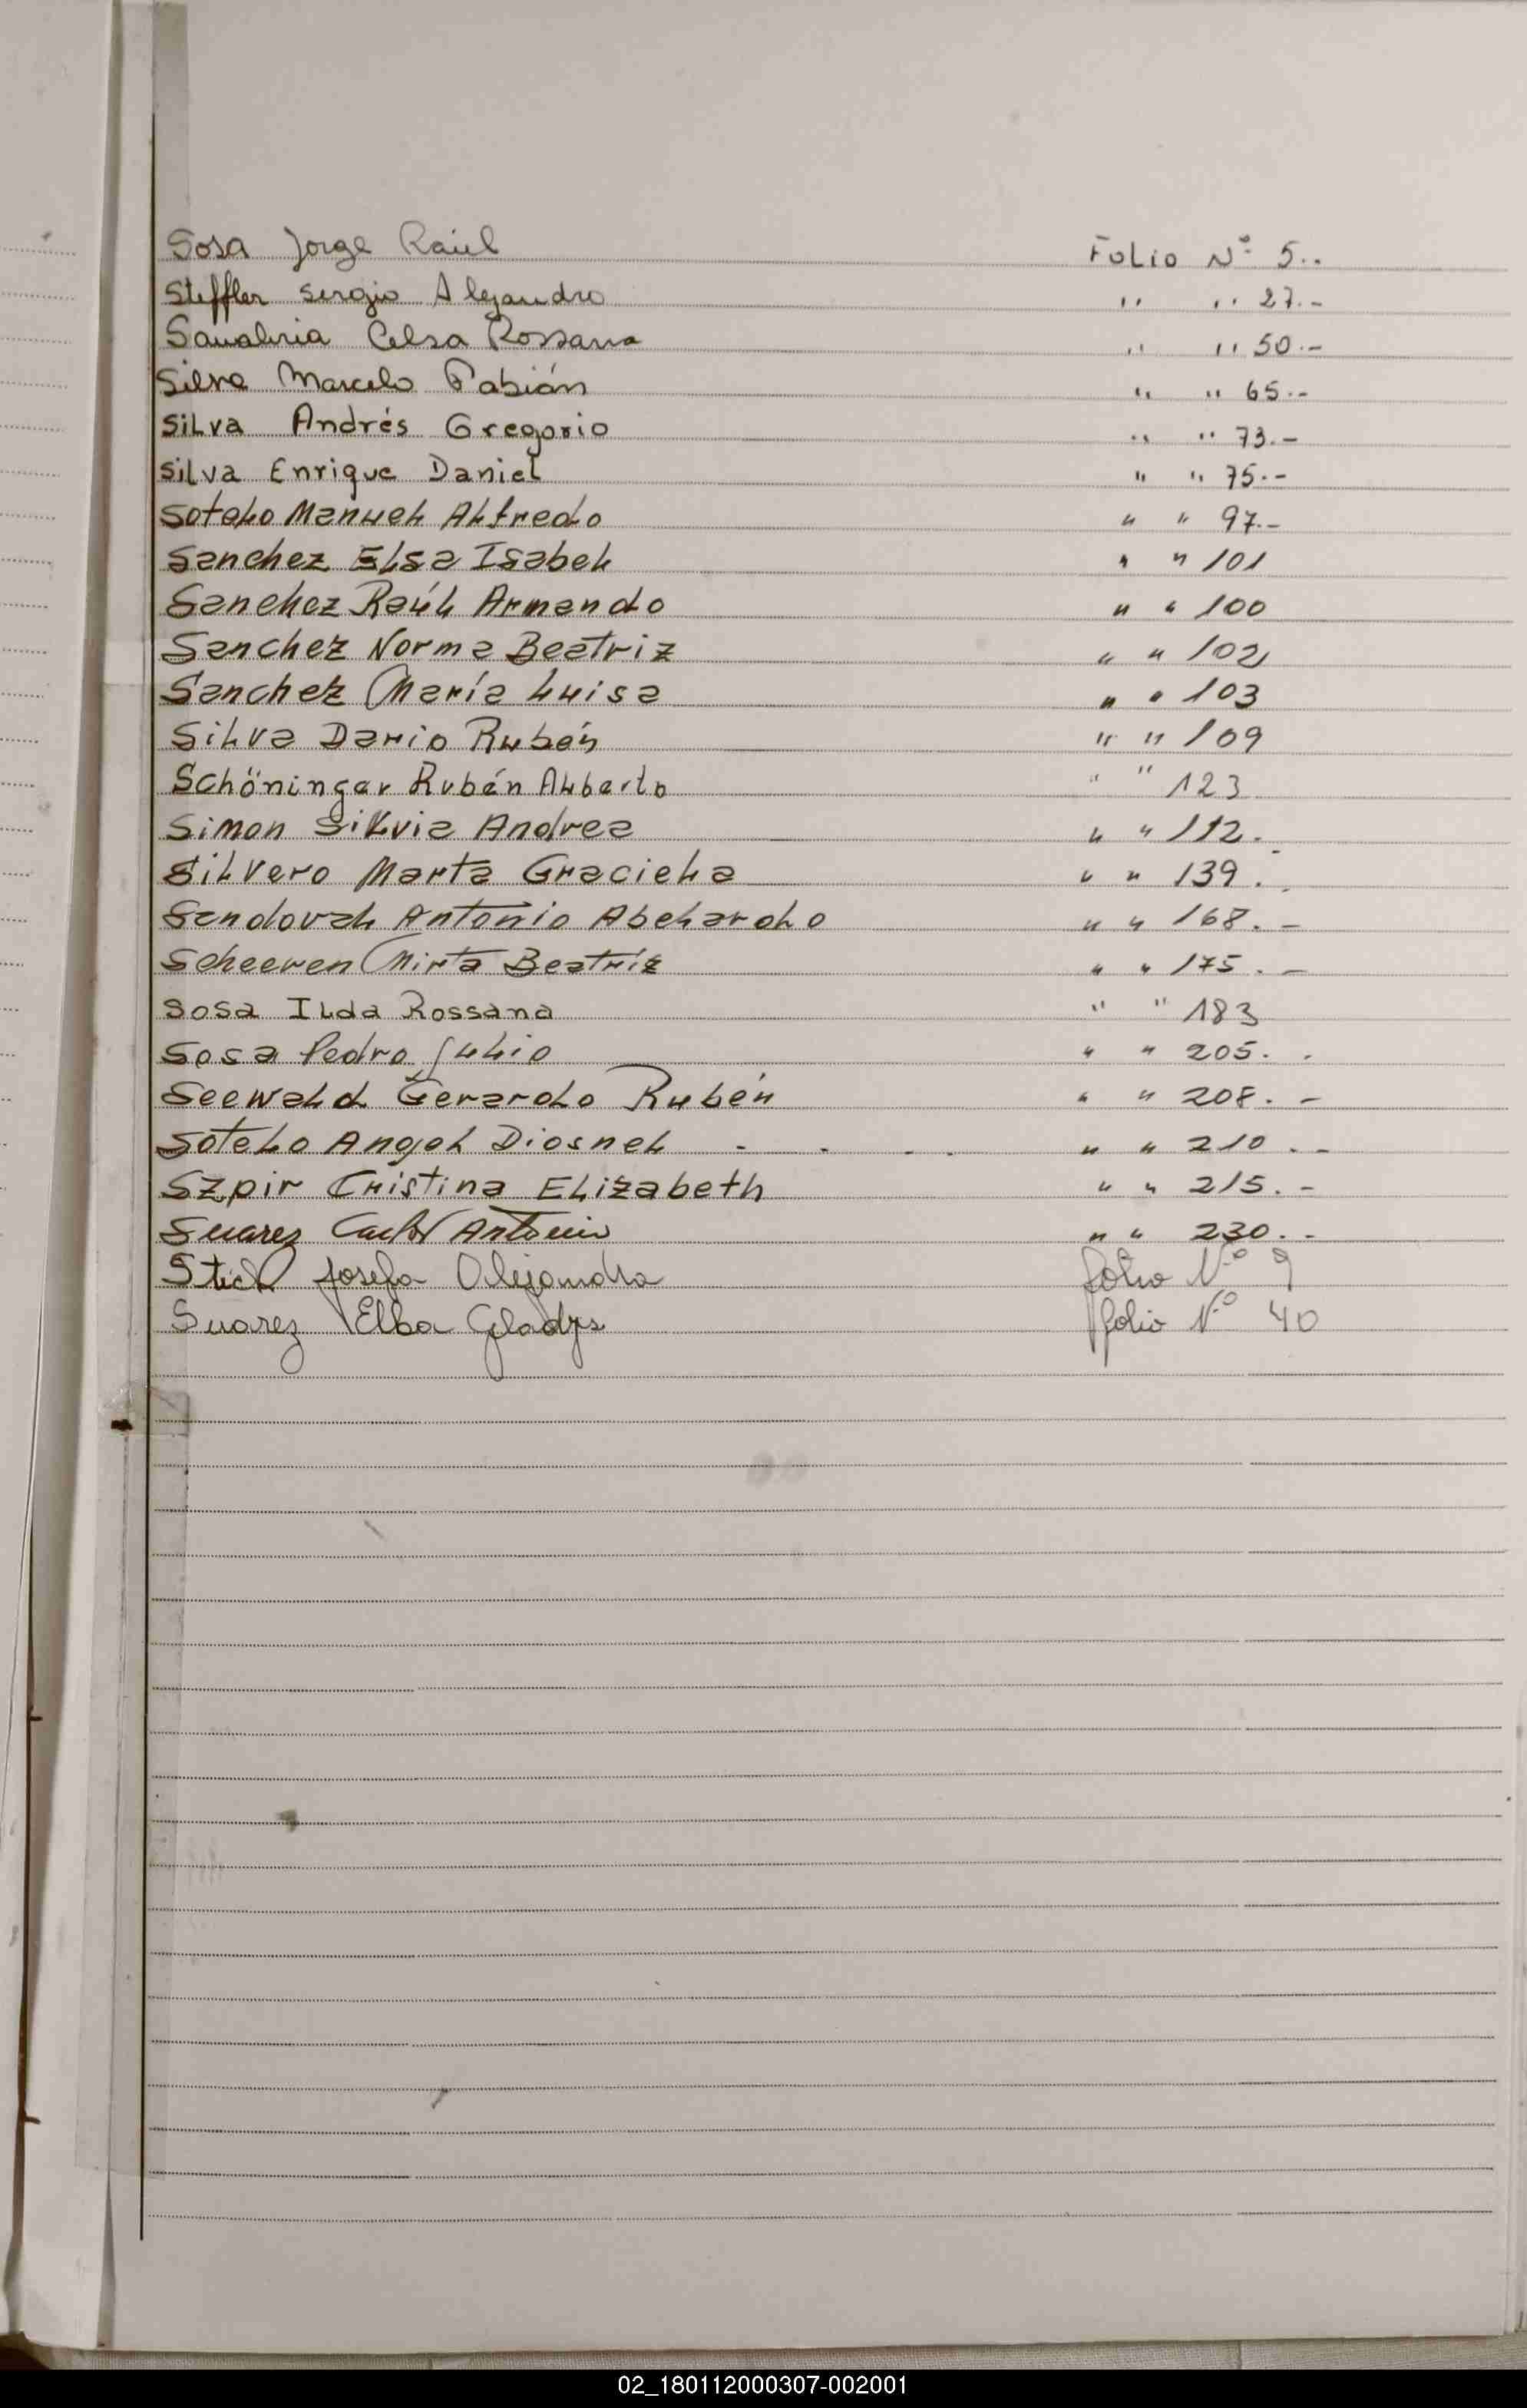 Sosa Jorge Raúl Folio Nº 5..
Steffler Sergio Alejandro " " 27.-
Sanabria Celsa Rossana " " 50.-
Silva Marcelo Fabián " " 65.-
Silva Andrés Gregorio " " 73.-
Silva Enrique Daniel " " 75.-
Sotelo Manuel Alfredo " " 97.-
Sanchez Elsa Isabel " " 101
Sanchez Raúl Armando " " 100
Sanchez Norma Beatriz " " 102
Sanchez María Luisa " " 103
Silva Dario Rubén " " 109
Schöninger Rubén Alberto " " 123
Simon Silvia Andrea " " 112.
Silvero Marta Graciela " " 139.
Sandoval Antonio Abelardo " " 168.-
Scheeren Mirta Beatriz " " 175.-
Sosa Ilda Rossana " " 183
Sosa Pedro Julio " " 205..
Seewald Gerardo Rubén " " 208.-
Sotelo Angel Diosnel - . . . " " 210.-
Szpir Cristina Elizabeth " " 215.-
Suarez Carlos Antonio " " 230.-
Stich Josefa Alejandra folio Nº 9
Suarez Elba Gladys folio Nº 40
02_180112000307-002001